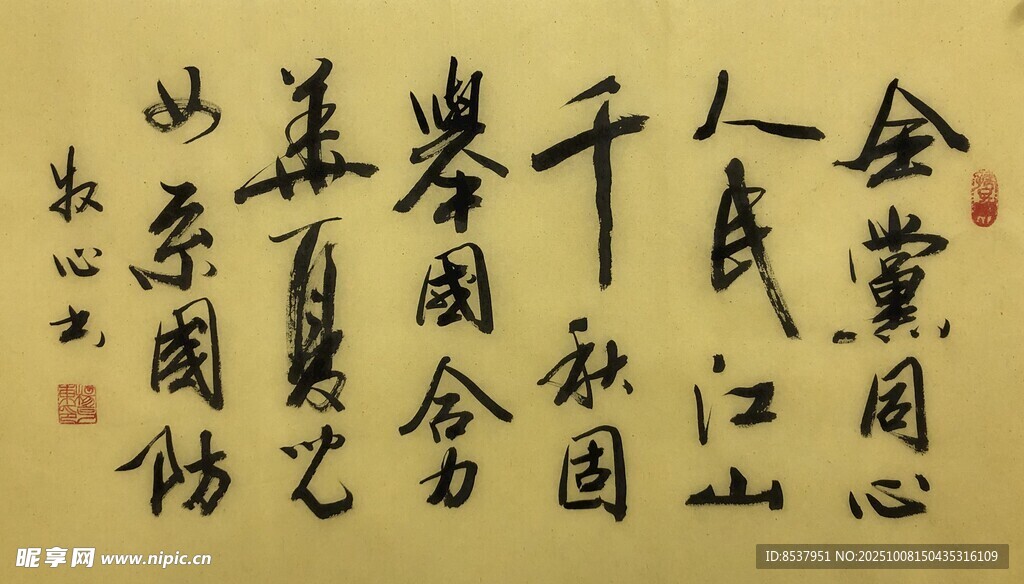 全黨同心
人民江山
千秋固
舉國合力
華夏兒
女系國防
牧心书
昵享网 www.nipic.cn
ID:8537951 NO:20251008150435316109